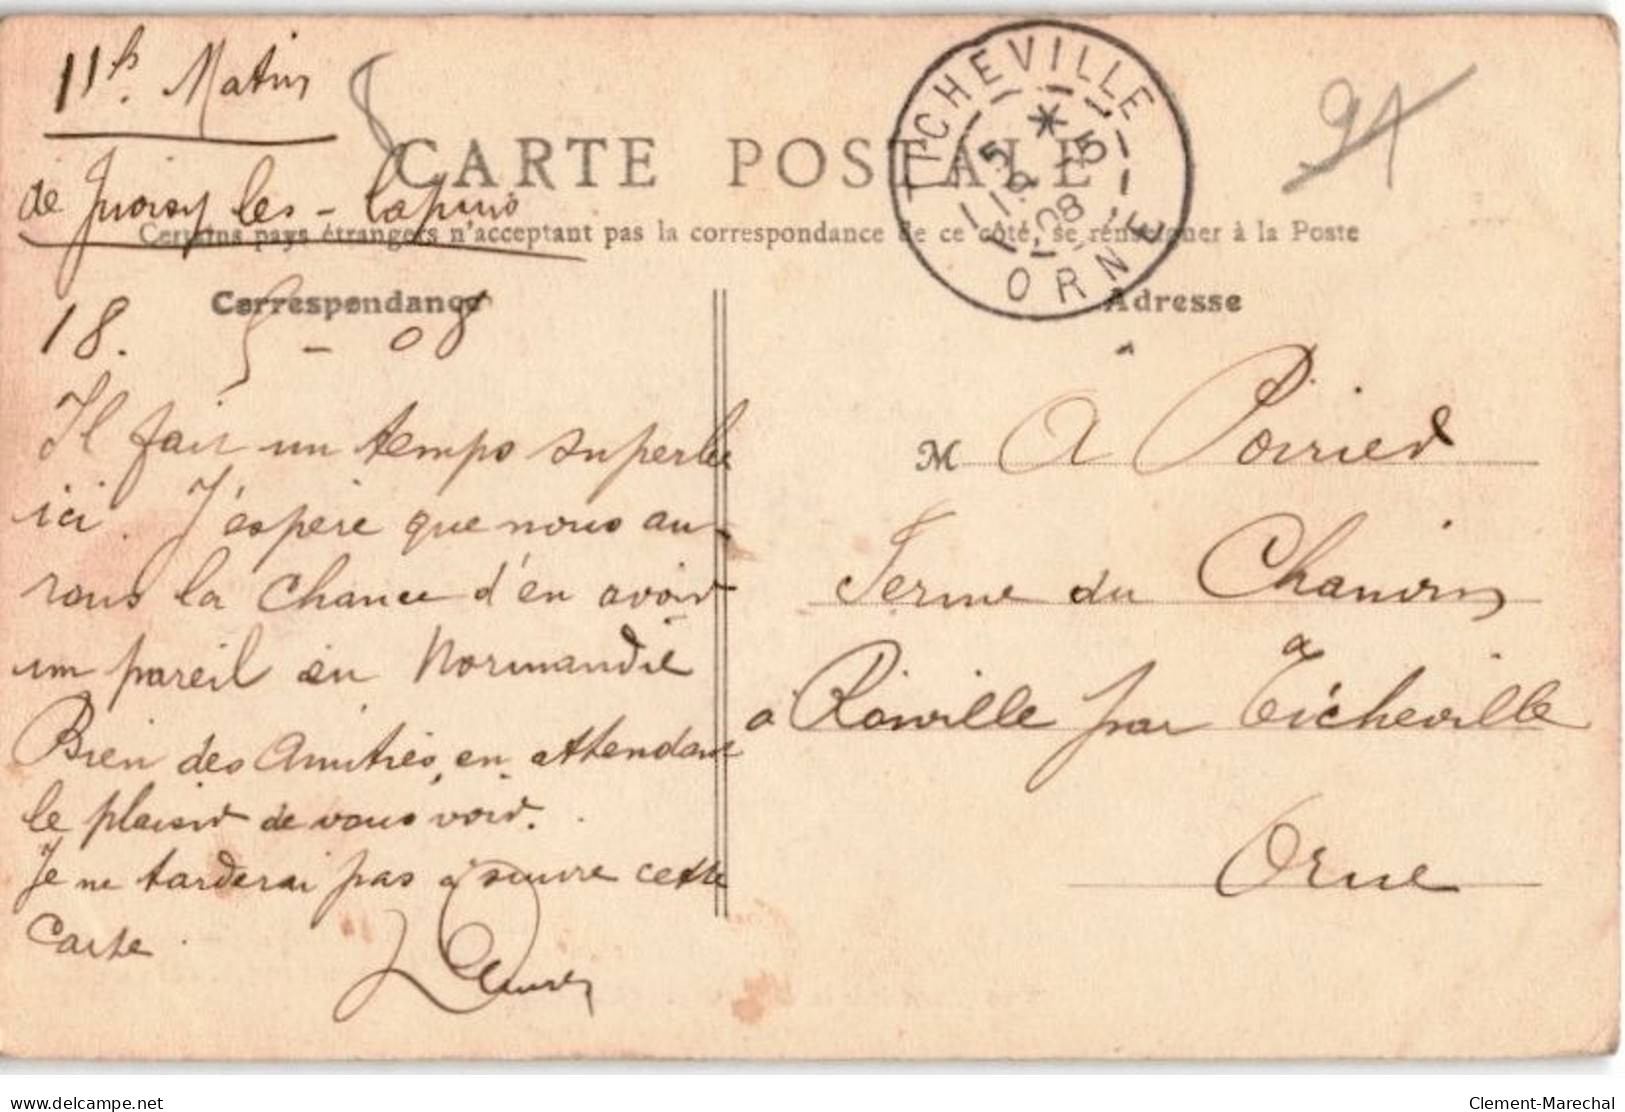 11h. Matin
8
91
CARTE POSTALE
TICHEVILLE
ORNE
de Juvisy les - lapins
Certains pays étrangers n'acceptent pas la correspondance de ce côté, se renseigner à la Poste
Correspondance
Adresse
18. 5 - 08
Il fait un temps superbe
ici. J'espère que nous au-
rons la chance d'en avoir
un pareil en Normandie
Bien des Amitiés, en attendant
le plaisir de vous voir.
Je ne tarderai pas à suivre cette
Carte.
M A Poirier
Ferme du
à par Ticheville
Orne
delcampe.net
Clement-Marechal